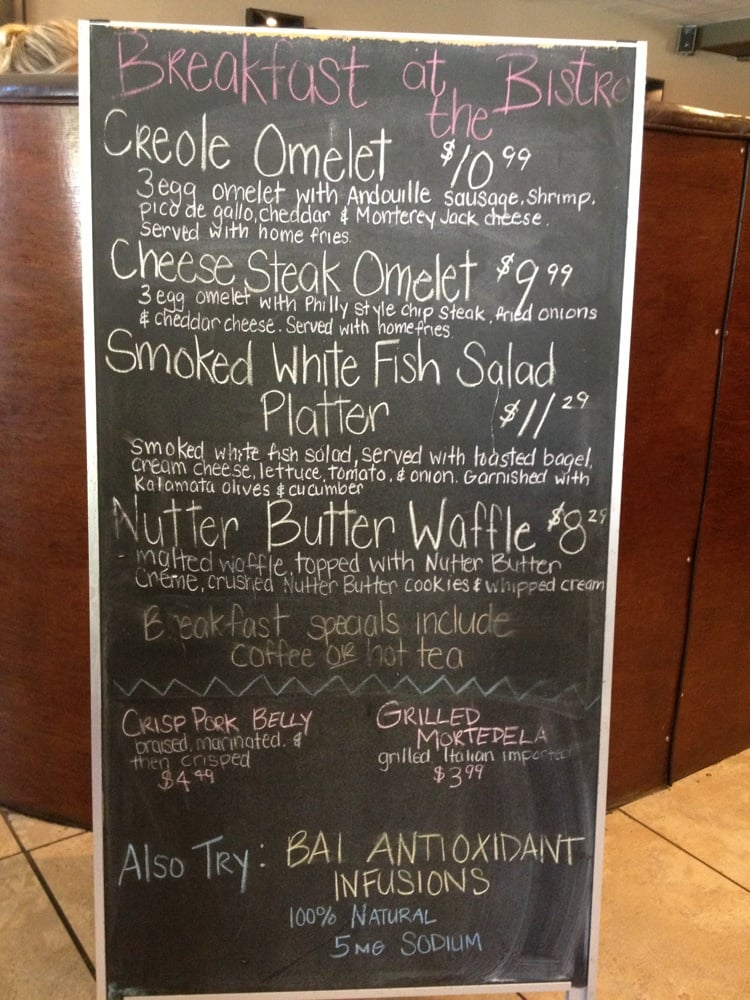 Breakfast at the Bistro
Creole Omelet $10.99
3 egg omelet with Andouille sausage, Shrimp,
pico de gallo, cheddar & Monterey Jack cheese.
Served with home fries.
Cheese Steak Omelet $9.99
3 egg omelet with Philly style chip steak, fried onions
& cheddar cheese. Served with homefries
Smoked White Fish Salad
Platter $11.29
Smoked white fish salad, served with toasted bagel,
cream cheese, lettuce, tomato, & onion. Garnished with
Kalamata olives & cucumber
Nutter Butter Waffle $8.29
malted waffle, topped with Nutter Butter
Créme, crushed Nutter Butter cookies & whipped cream
Breakfast specials include
coffee or hot tea
Crisp Pork Belly
braised, marinated, &
then crisped
$4.99
Grilled
Mortedela
grilled Italian imported
$3.99
Also Try: BAI ANTIOXIDANT
INFUSIONS
100% Natural
5mg Sodium